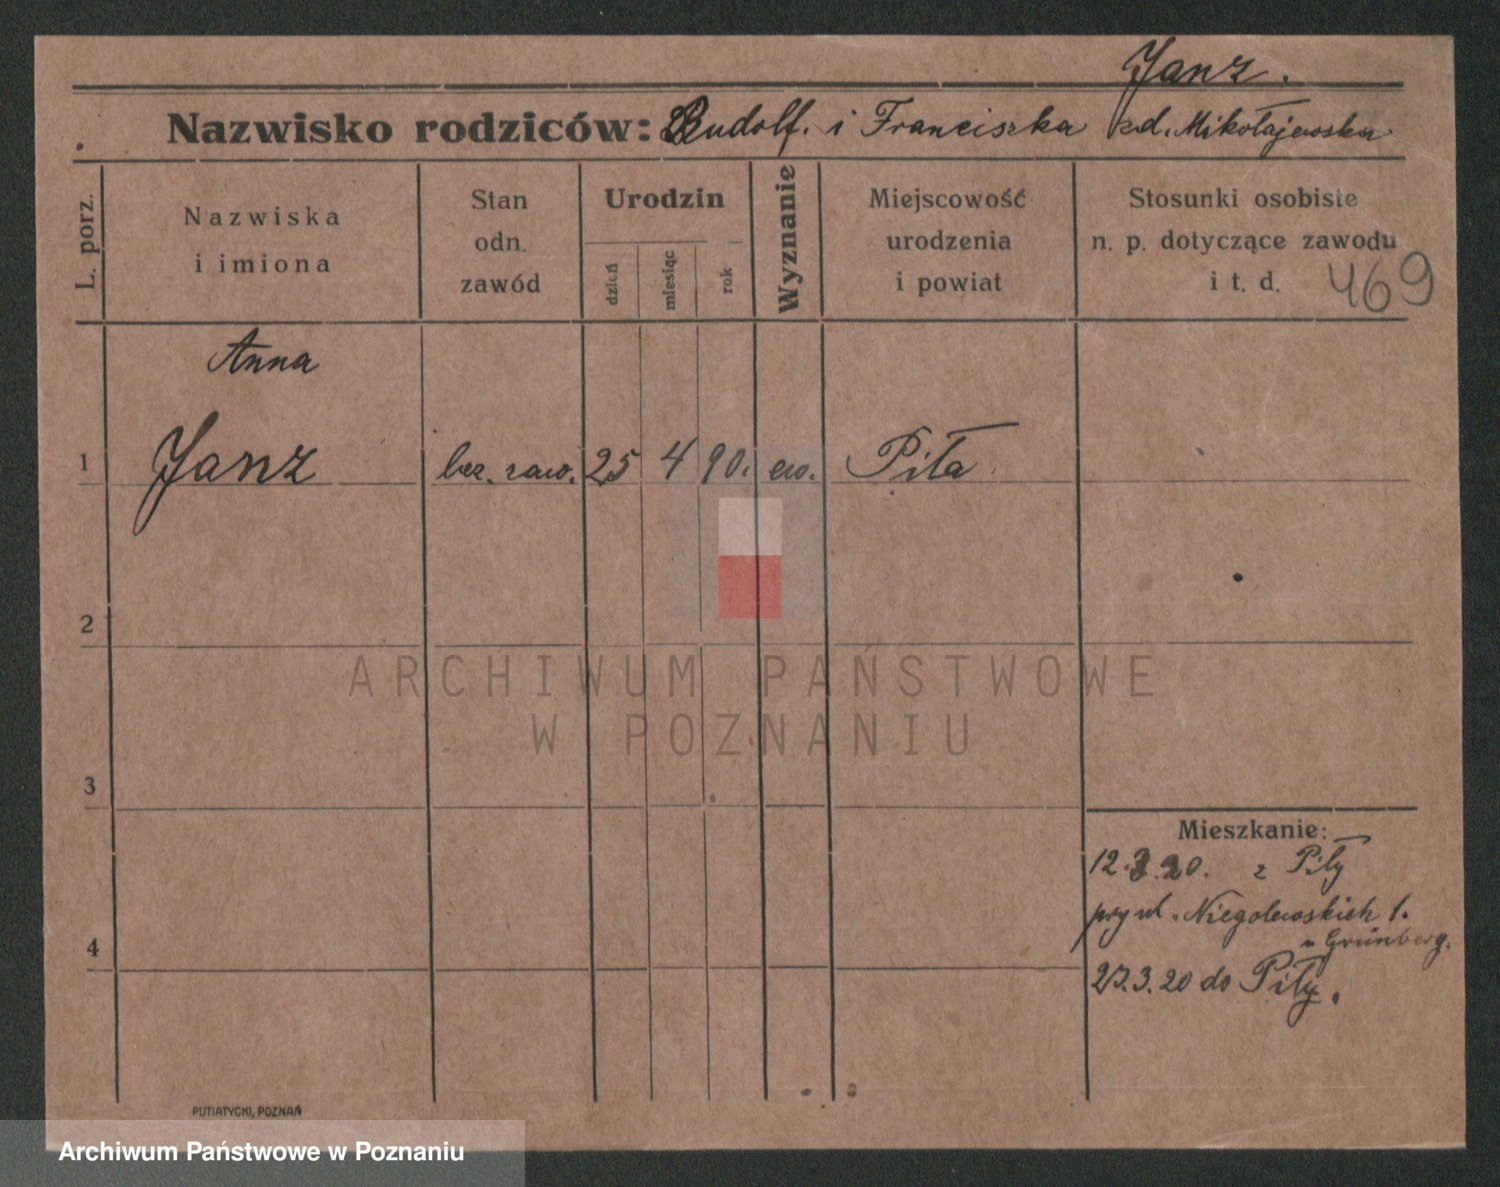 Janz.
Nazwisko rodziców: Rudolf. i Franciszka zd. Mikołajewska
L. porz.
Nazwiska
i imiona
Stan
odn.
zawód
Urodzin
dzień
miesiąc
rok
Wyznanie
Miejscowość
urodzenia
i powiat
Stosunki osobiste
n. p. dotyczące zawodu
i t. d.
469
Anna
1 Janz bez. zaw. 25 4 90. ew. Piła
2
ARCHIWUM PAŃSTWOWE
W POZNANIU
3
Mieszkanie:
12.3.20. z Piły
przy ul. Niegolewskich 1.
u Grünberg.
4
.3.20 do Piły.
PUTIATYCKI, POZNAŃ
Archiwum Państwowe w Poznaniu